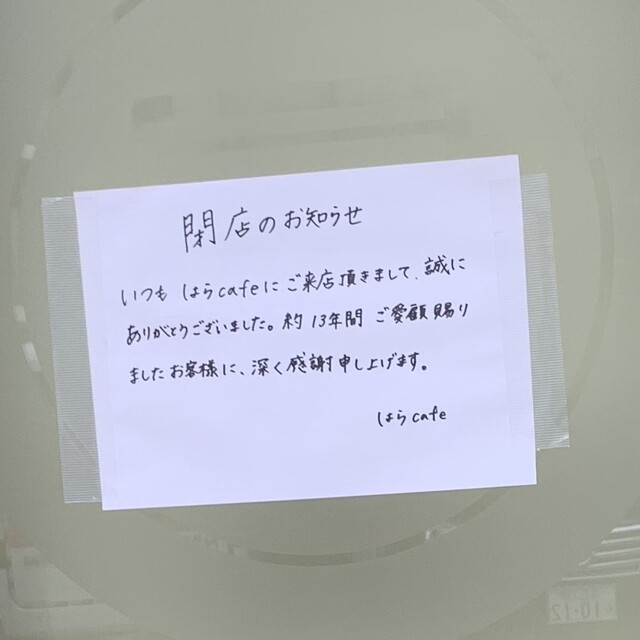 閉店のお知らせ
いつも はらcafeにご来店頂きまして、誠に
ありがとうございました。約13年間 ご愛顧賜り
ましたお客様に、深く感謝申し上げます。
はらcafe